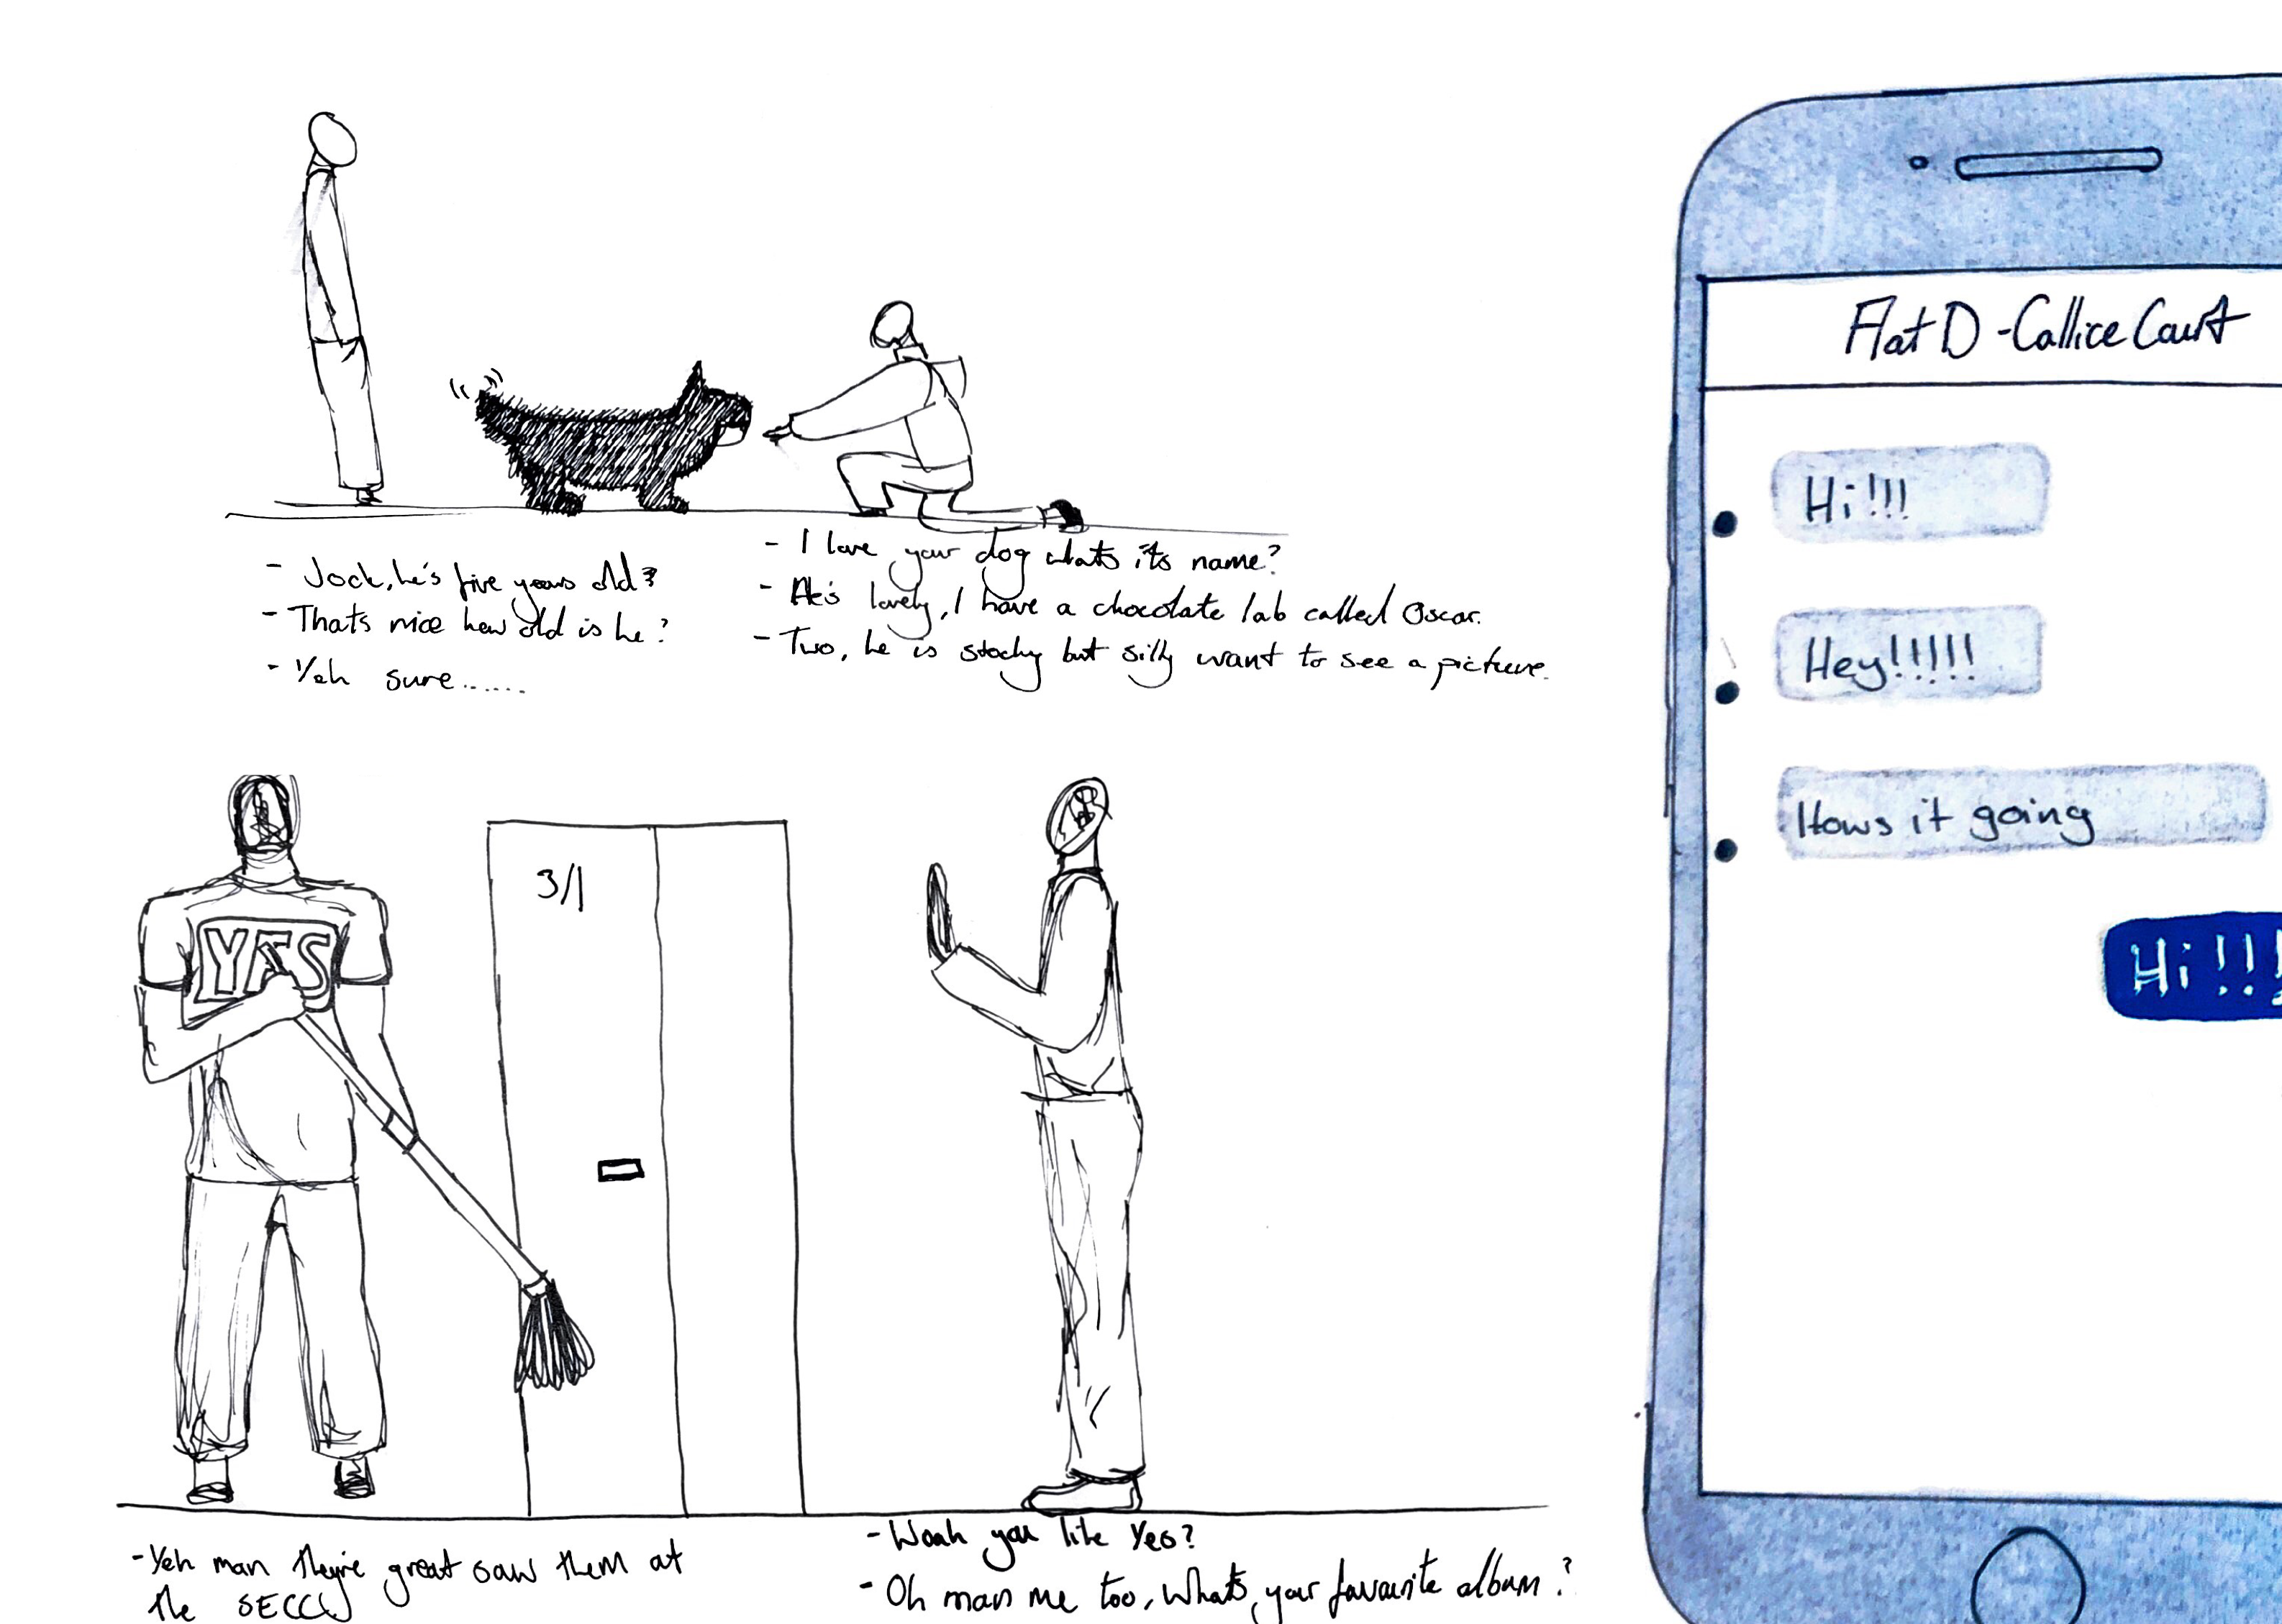 - Jock, he's five years old?
- Thats nice how old is he?
- Yeh sure.......
- I love your dog whats its name?
- He's lovely, I have a chocolate lab called Oscar.
- Two, he is stocky but silly want to see a picture.
YES
3/1
- Yeh man they're great saw them at
the SECC
- Woah you like Yes?
- Oh man me too, whats your favourite album?
Flat D - Callice Court
Hi!!!
Hey!!!!!
Hows it going
Hi!!!